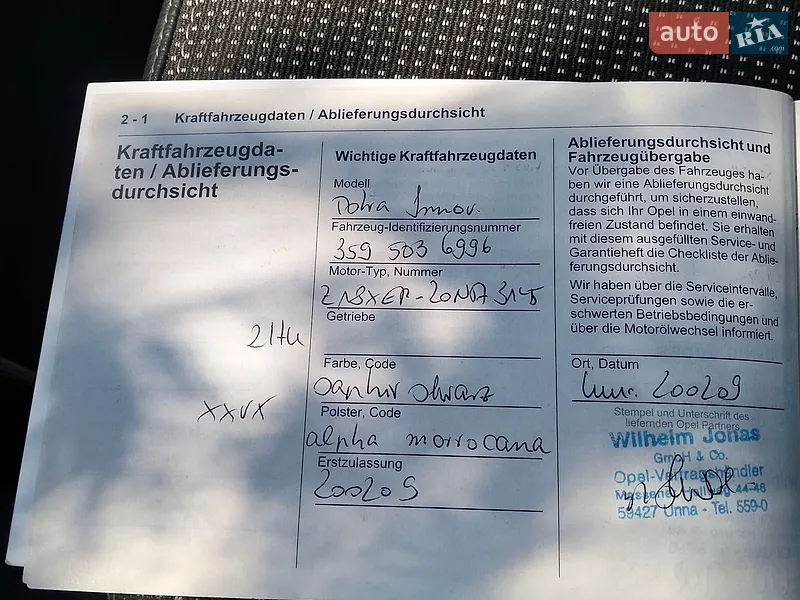 auto RIA.com
2 - 1 Kraftfahrzeugdaten / Ablieferungsdurchsicht
Kraftfahrzeugda-
ten / Ablieferungs-
durchsicht
21Hu
XXVX
Wichtige Kraftfahrzeugdaten
Modell
Innov.
Fahrzeug-Identifizierungsnummer
359 503 6996
Motor-Typ, Nummer
Getriebe
Farbe, Code
Saphir
Polster, Code
alpha morrocana
Erstzulassung
200209
Ablieferungsdurchsicht und
Fahrzeugübergabe
Vor Übergabe des Fahrzeuges ha-
ben wir eine Ablieferungsdurchsicht
durchgeführt, um sicherzustellen,
dass sich Ihr Opel in einem einwand-
freien Zustand befindet. Sie erhalten
mit diesem ausgefüllten Service- und
Garantieheft die Checkliste der Ablie-
ferungsdurchsicht.
Wir haben über die Serviceintervalle,
Serviceprüfungen sowie die er-
schwerten Betriebsbedingungen und
über die Motorölwechsel informiert.
Ort, Datum
200209
Stempel und Unterschrift des
liefernden Opel Partners
Wilhelm Jonas
GmbH & Co.
Opel-Vertragshändler
44-46
59427 Unna - Tel. 559-0